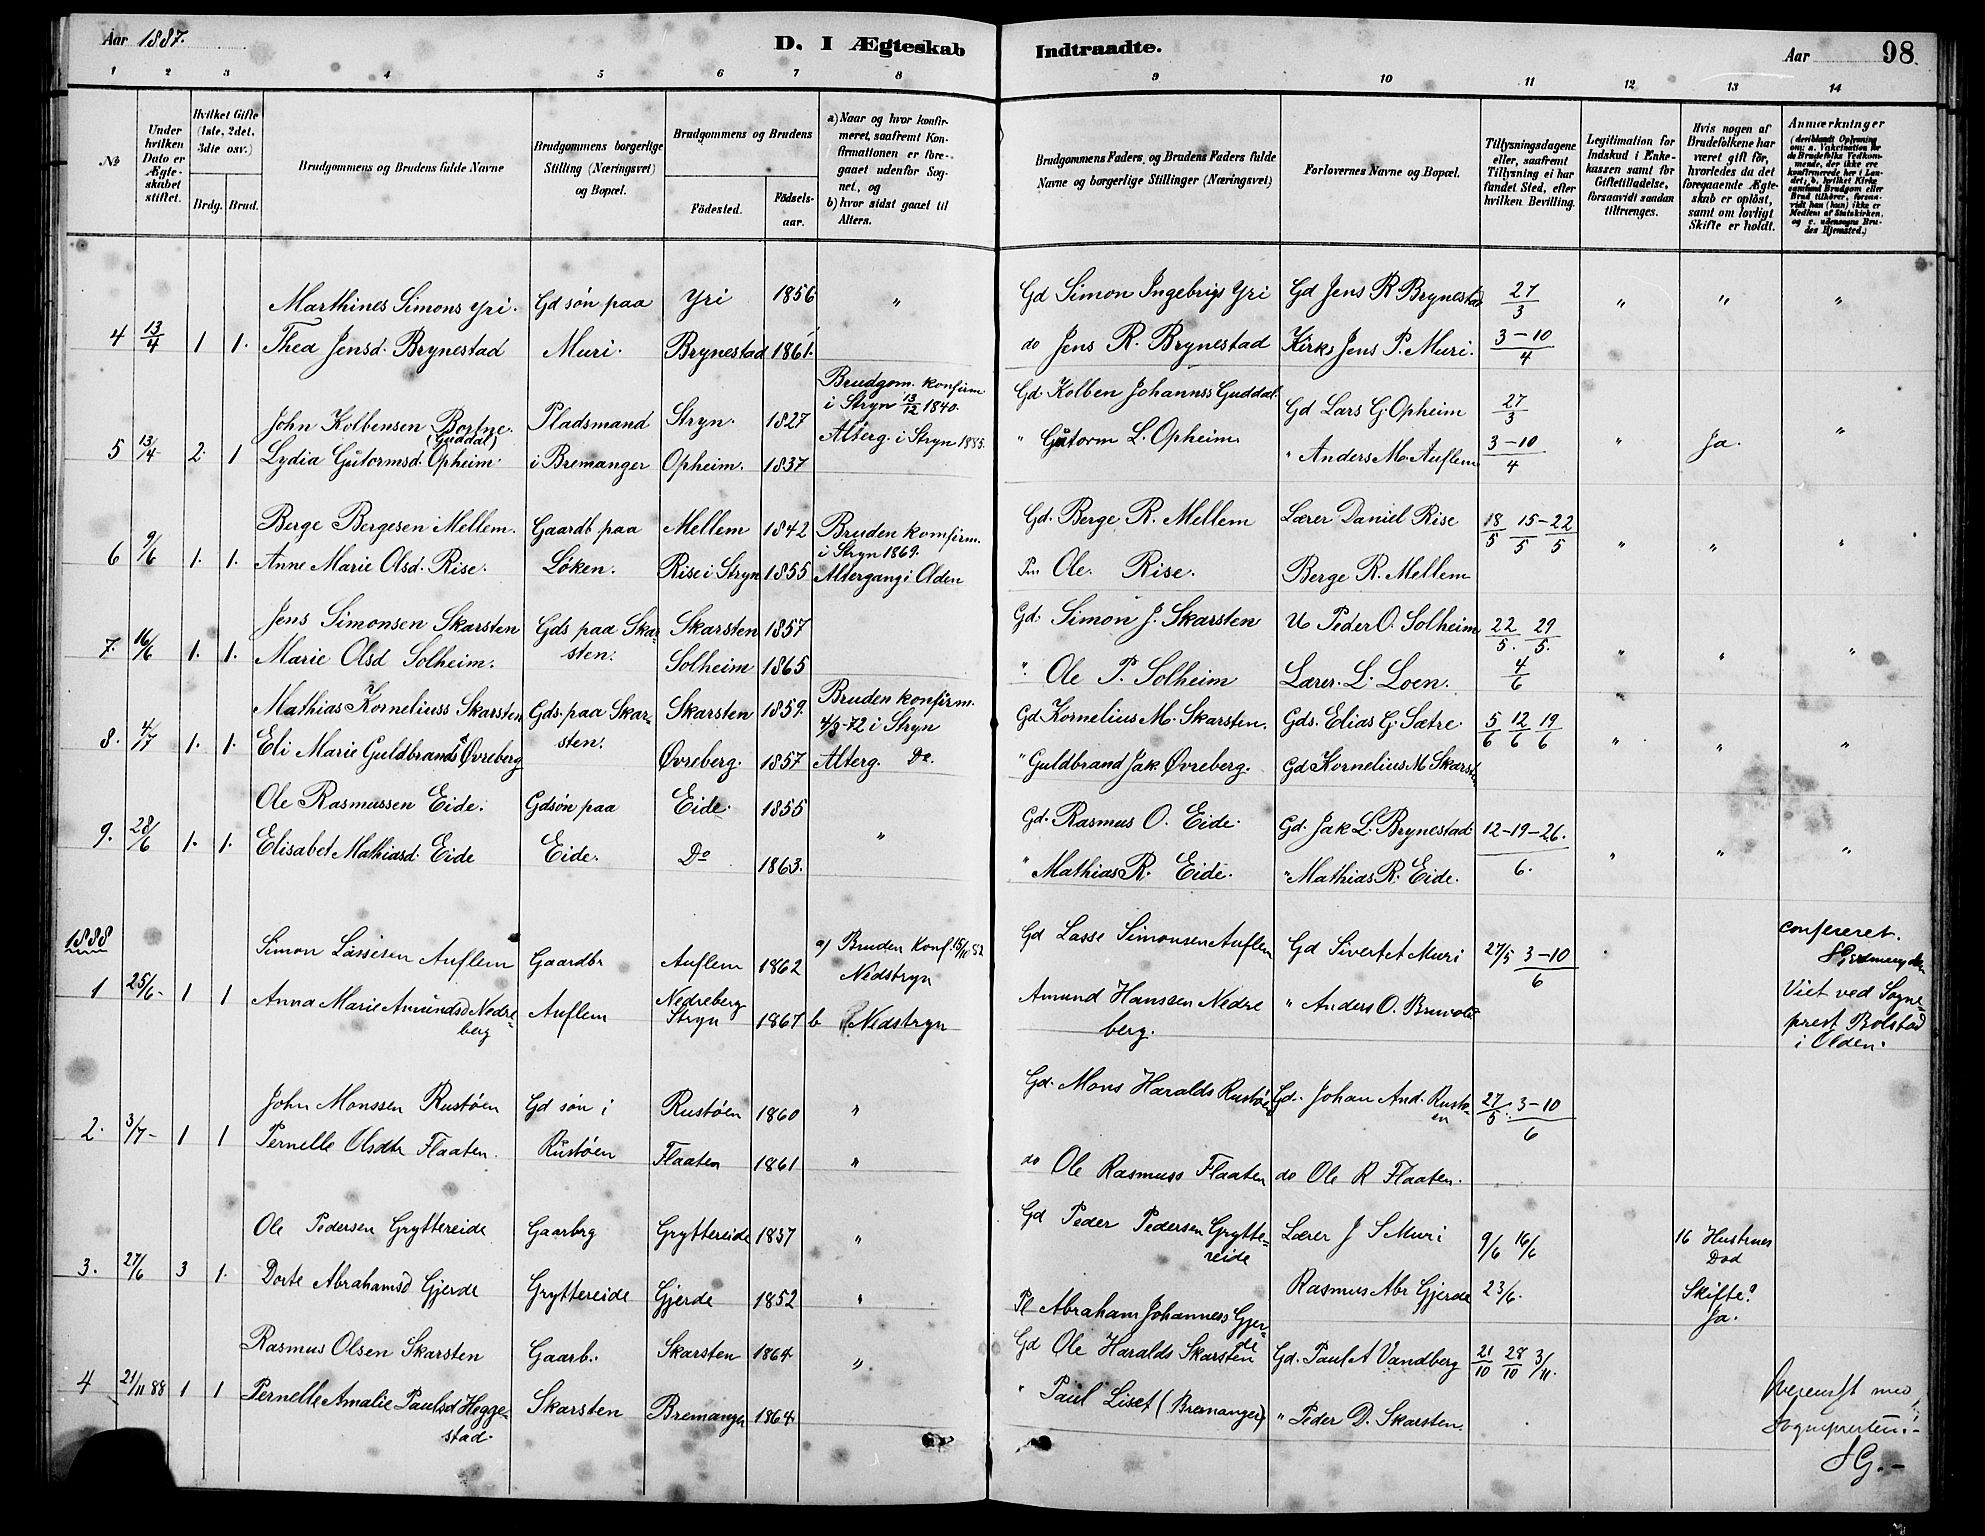 Aar 1887.
D. I Ægteskab Indtraadte.
Aar
98
1 2 3 4 5 6 7 8 9 10 11 12 13 14
No
Under hvilken Dato er Ægteskabet stiftet.
Hvilket Gifte (1ste, 2det, 3die osv.)
Brdg. Brud.
Brudgommens og Brudens fulde Navne
Brudgommens borgerlige Stilling (Næringsvei) og Bopæl.
Brudgommens og Brudens
Födested.
Födselsaar.
a) Naar og hvor konfirmeret, saafremt Konfirmationen er foregaaet udenfor Sognet, og
b) hvor sidst gaaet til Alters.
Brudgommens Faders, og Brudens Faders fulde Navne og borgerlige Stillinger (Næringsvei)
Forlovernes Navne og Bopæl.
Tillysningsdagene eller, saafremt Tillysning ei har fundet Sted, efter hvilken Bevilling.
Legitimation for Indskud i Enkekassen samt for Giftetilladelse, forsaavidt saadan tiltrænges.
Hvis nogen af Brudefolkene har været gift før, hvorledes da det foregaaende Ægteskab er opløst, samt om lovligt Skifte er holdt.
Anmærkninger
(deriblandt Oplysning om: a. Vakcination for de Brudefolks Vedkommende, der ikke ere konfirmerede her i Landet; b. hvilket Kirkesamfund Brudgom eller Brud tilhører, forsaavidt han (hun) ikke er Medlem af Statskirken, og c. udensogns Brudes Hjemsted.)
Marthines Simons Yri. Gd søn paa Yri 1856 " Gd Simon Ingebrigs Yri Gd Jens R Brynestad 27/3 " " "
4 13/4 1 1. Thea Jensd. Brynestad Muri. Brynestad 1861. do Jens R. Brynestad Kirks Jens P. Muri. 3-10/4
Brudgom. konfirm
i Stryn 13/12 1840.
Gd Kolben Johannss Guddal.
John Kolbensen Bortne. Pladsmand Stryn. 1827 Gd Lars G. Opheim 27/3
(Guddal)
Alterg. i Stryn 1885.
5 13/4 2. 1 Lydia Gutormsd. Opheim i Bremanger Opheim. 1837 " Gutorm L. Opheim. " Anders M. Auflem 3-10/4 " Ja. "
Berge Bergesen Mellem. Gaardb paa Mellem 1842 Bruden komfirm. Gd. Berge R. Mellem Lærer Daniel Rise 18/5 15-22/5 5
i Stryn 1869.
6 9/6 1. 1. Anne Marie Olsd. Rise. Løken. Rise i Stryn 1855 Altergang i Olden Ole. Rise. Berge R. Mellem " " "
Jens Simonsen Skarsten Gds paa Skar- Skarsten 1857 Gd. Simon J. Skarsten Peder O. Solheim 22/5. 29/5.
sten.
7. 16/6 1. 1. Marie Olsd Solheim. Solheim 1865 " Ole P. Solheim Lærer. L. Loen. 4/6 " " "
Mathias Korneliuss Skarsten Gds. paa Skar- Skarsten 1859. Bruden konfirm. Gd Kornelius M. Skarsten. Gds. Elias G. Sætre. 5/6 12/6 19/6
sten.
4/8-72 i Stryn
8. 4/17 1. 1. Eli Marie Guldbrands Øvreberg Øvreberg. 1857 Alterg. Do. " Guldbrand Jak. Øvreberg. Gd Kornelius M Skarsten " " "
Ole Rasmussen Eide. Gdsøn paa Eide. 1855 Gd. Rasmus O. Eide. Gd. Jak L. Brynestad 12-19-26.
9. 28/6 1. 1. Elisabet Mathiasd. Eide Eide. Do 1863. " " Mathias R. Eide. " Mathias R. Eide. 6. " " "
1888
Simon Lassesen Auflem Gaardbr Auflem 1862 a) Bruden Konf. 15/10 82 Gd Lasse Simonsen Auflem Gd Sivert A Muri 27/5 3-10/6 confereret.
Nedstryn
1 25/6- 1 1 Anna Marie Amundsd Nedre- Auflem Nedreberg 1867 b Nedstryn Amund Hanssen Nedre " Anders O. Viet ved Sogne-
berg
Stryn
berg.
prest Bolstad
i Olden.
John Monssen Rustøen Gd søn i Rustøen 1860 " Gd. Mons Haralds Rustøen Gd. Johan And. Rustø- 27/5. 3-10/6
en
2. 3/7- 1 1 Pernelle Olsdtr Flaaten. Rustøen Flaaten 1861 " do Ole Rasmuss Flaaten do Ole R Flaaten.
Ole Pedersen Gryttereide Gaarbrg Gryttereide 1837 " Gd Peder Pedersen Grytte- Lærer J S Muri 9/6 16/6 16 Hustrues
reide
Død
3. 27/6 3 1. Dorte Abrahamsd Gjerde Gryttereide Gjerde 1852 " Pl Abraham Johanness Gjer- Rasmus Abr Gjerde 23/6. Skifte?
de
Ja.
Rasmus Olsen Skarsten Gaarb. Skarsten 1864 " Gd Ole Haralds Skarsten Gd. Paul A Vandberg 21/10 28/10 3/11.
4 21/11 88 1 1 Pernelle Amalie Paulsd Hegge- Skarsten Bremanger 1864 " Paul Liset (Bremanger) " Peder D. Skarsten. Overenst med
stad.
Sognepresten.
SG.-